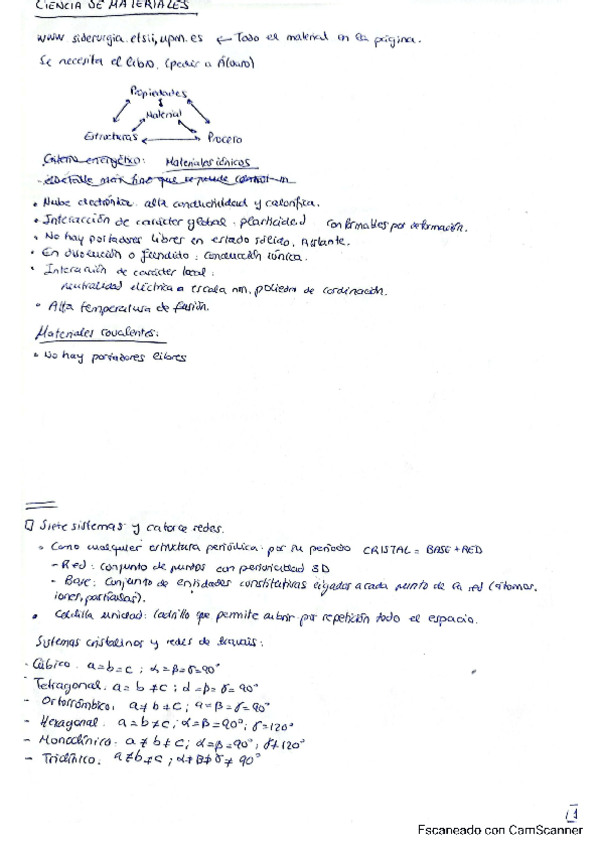 CIENCIA DE MATERIALES
www siderurgia.etsii,upm.es ← Todo el material en la página.
Se necesita el libro. (pedir a Álvaro)
Propiedades
Material
Estructuras
Proceso
Criterio energético: Materiales iónicos
- detalle más fino que se puede
• Nube electrónica. alta conductividad y calorífica.
• Interacción de carácter global. plasticidad conformables por deformación.
• No hay portadores libres en estado sólido. Aislante.
• En disolución o fundido: conducción iónica.
• Interacción de carácter local:
neutralidad eléctrica a escala nm. poliedro de cordinación.
• Alta temperatura de fusión.
Materiales covalentes:
• No hay portadores libres
Siete sistemas y catorce redes.
• Como cualquier estructura periódica. por su periodo CRISTAL = BASE + RED
- Red: conjunto de puntos con periodicidad 3D
- Base: Conjunto de entidades constitutivas ligados a cada punto de la red (átomos,
iones, partículas).
• Celdilla unidad: ladrillo que permite cubrir por repetición todo el espacio.
Sistemas cristalinos y redes de bravais:
- Cúbico. a=b=c ; α=β=γ=90°
- Tetragonal. a=b≠c ; α=β=γ=90°
- Ortorrómbico. a≠b≠c ; α=β=γ=90°
- Hexagonal. a=b≠c ; α=β=90°; γ=120°
- Monoclínico. a≠b≠c ; α=β=90°, γ≠120°
- Triclínico. a≠b≠c ; α≠β≠γ≠90°
1
Escaneado con CamScanner